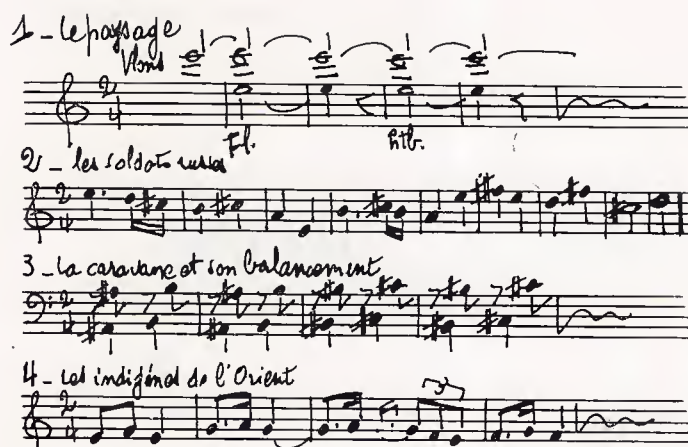 1 - le paysage
Vlons
Fl. htb.
2 - les soldats russes
3 - la caravane et son balancement
4 - les indigènes de l'Orient
3